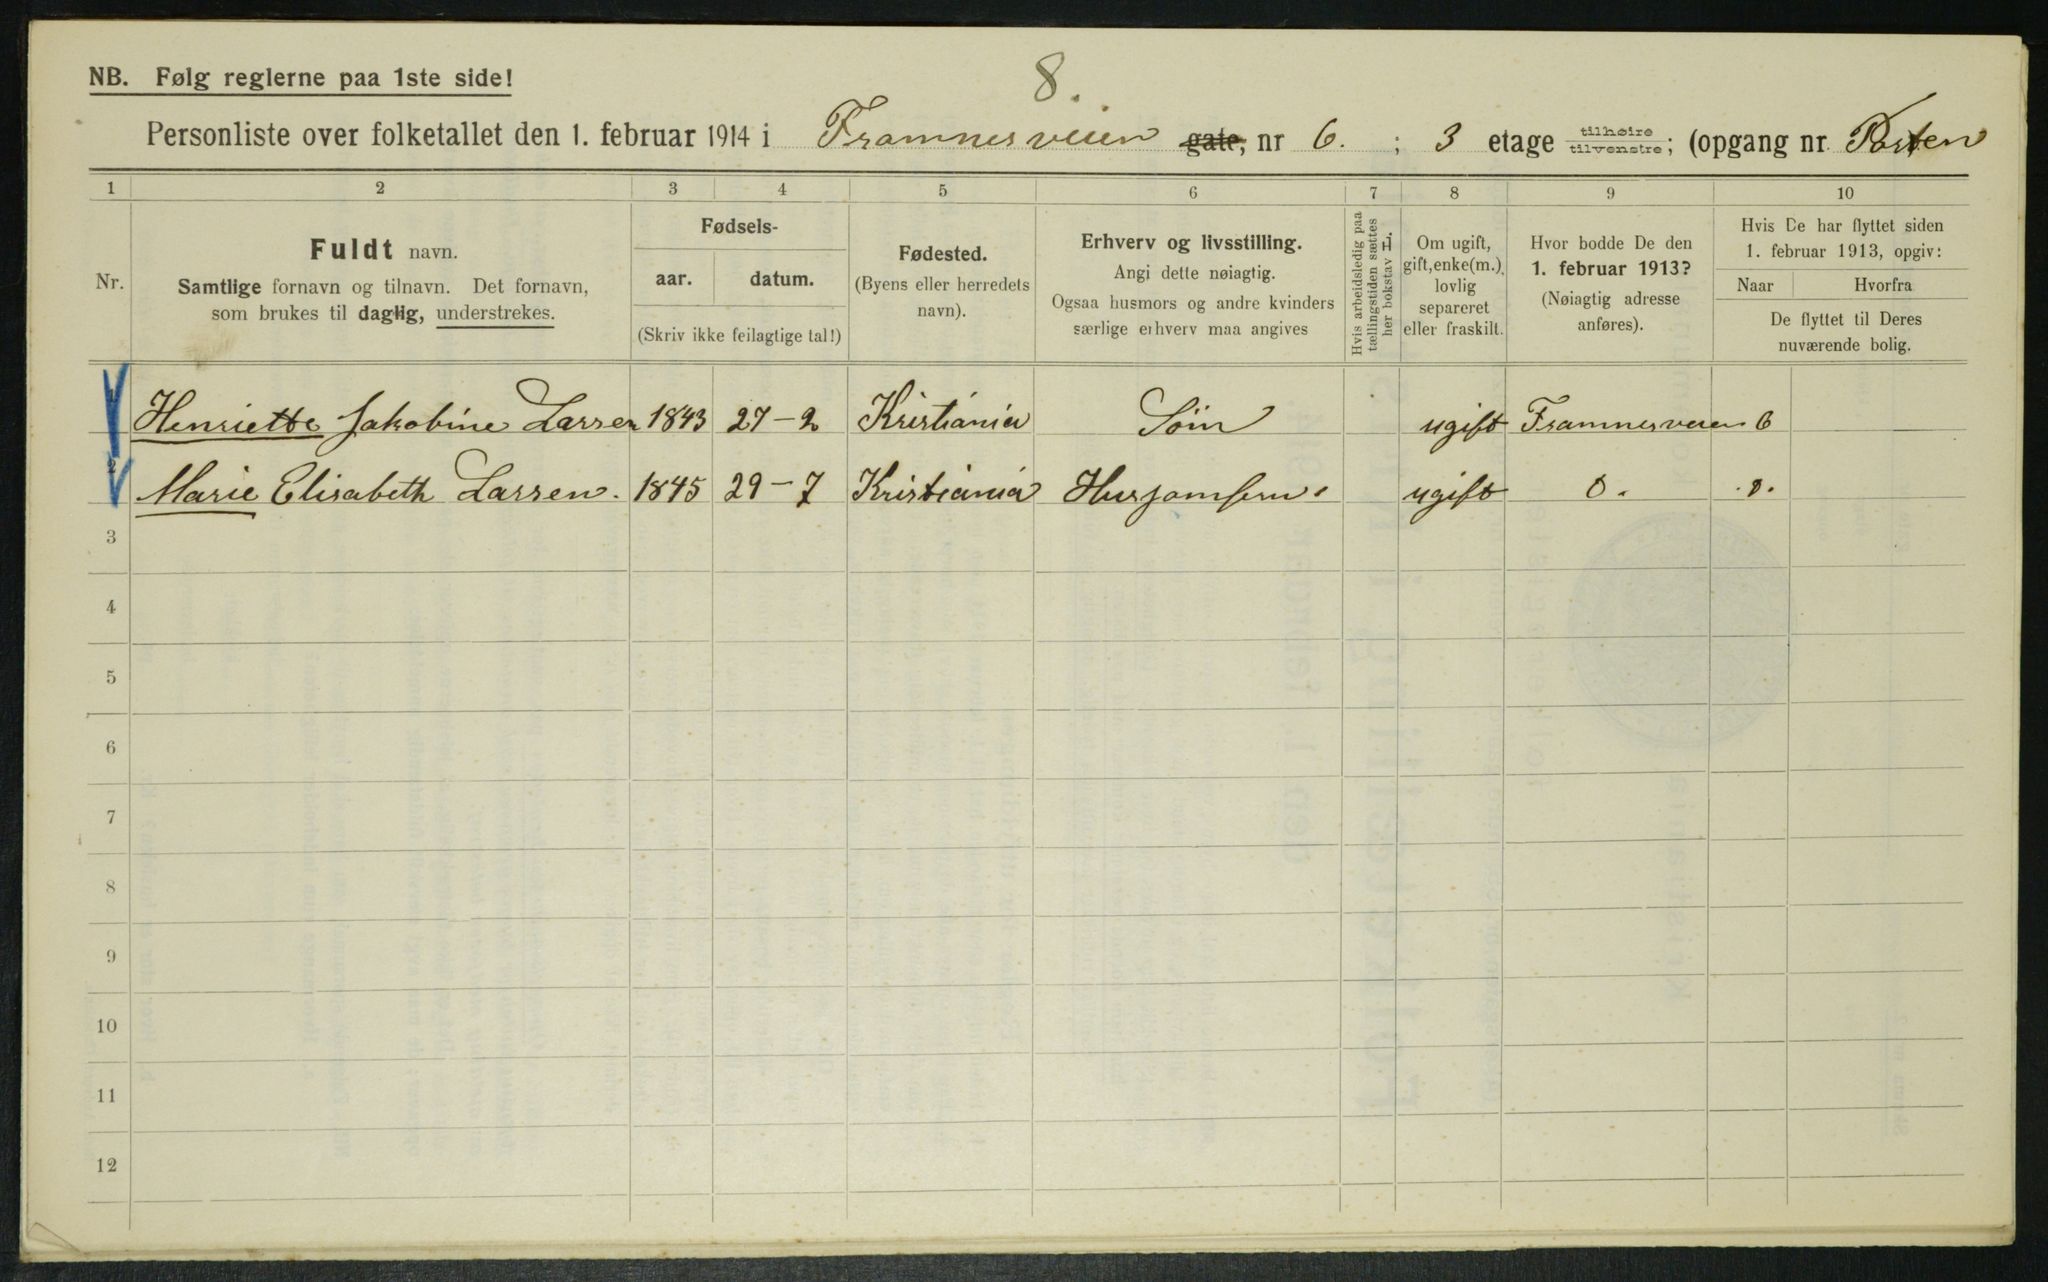 8.
NB. Følg reglerne paa 1ste side!
Personliste over folketallet den 1. februar 1914 i Framnesveien gate, nr 6. ; 3 etage tilhøire tilvenstre; (opgang nr Porten
1 2 3 4 5 6 7 8 9 10
Nr.
Fuldt navn.
Samtlige fornavn og tilnavn. Det fornavn,
som brukes til daglig, understrekes.
Fødsels-
aar. datum.
(Skriv ikke feilagtige tal!)
Fødested.
(Byens eller herredets
navn).
Erhverv og livsstilling.
Angi dette nøiagtig.
Ogsaa husmors og andre kvinders
særlige erhverv maa angives
Hvis arbeidsledig paa
tællingstiden sættes
her bokstav L.
Om ugift,
gift, enke(m.),
lovlig
separeret
eller fraskilt.
Hvor bodde De den
1. februar 1913?
(Nøiagtig adresse
anføres).
Hvis De har flyttet siden
1. februar 1913, opgiv:
Naar Hvorfra
De flyttet til Deres
nuværende bolig.
1 Henriette Jakobine Larsen 1843 27-2 Kristiania Söm ugift Framnesveien 6
2 Marie Elisabeth Larsen. 1845 29-7 Kristiania Husjomfru. ugift
3
4
5
6
7
8
9
10
11
12